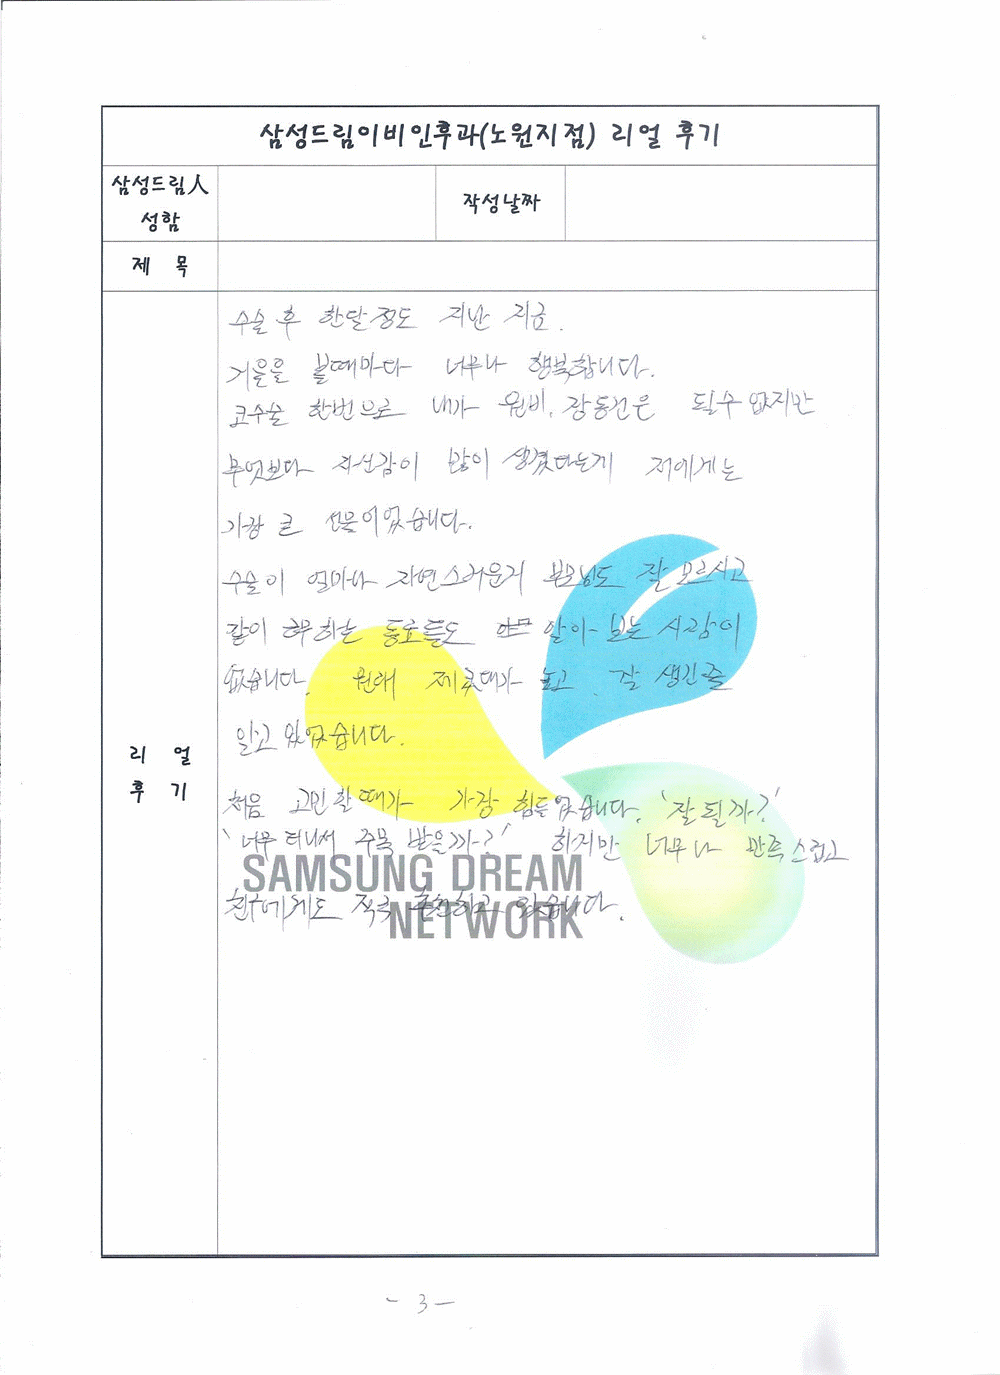 삼성드림이비인후과(노원지점) 리얼 후기
삼성드림人
성함
작성날짜
제 목
리 얼
후 기
수술 후 한달정도 지난 지금.
거울을 볼때마다 너무나 행복합니다.
코수술 한번으로 내가 원빈, 장동건은 될수 없지만
무엇보다 자신감이 많이 생겼다는게 저에게는
가장 큰 선물이었습니다.
수술이 얼마나 자연스러운지 부모님도 잘 모르시고
같이 하는 동료들도 알아보는 사람이
없습니다. 원래 제 콧대가 높고 잘 생긴줄
알고 있었습니다.
처음 고민할때가 가장 힘들었습니다. '잘 될까?'
'너무 티나서 주목 받을까?' 하지만 너무나 만족스럽고
친구에게도 적극 추천하고 있습니다.
SAMSUNG DREAM
NETWORK
- 3 -